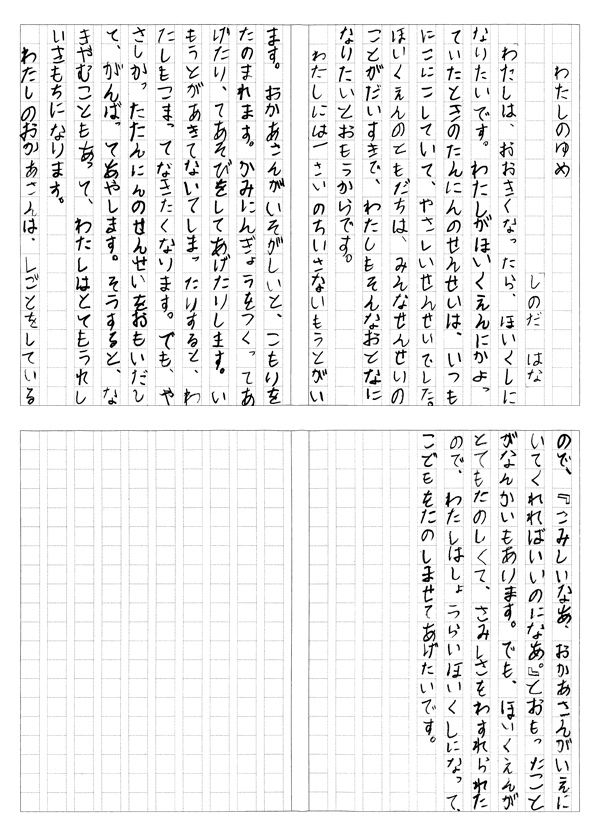 わたしのゆめ
しのだ はな
わたしは、おおきくなったら、ほいくしに
なりたいです。わたしがほいくえんにかよっ
ていたときのたんにんのせんせいは、いつも
にこにこしていて、やさしいせんせいでした。
ほいくえんのともだちは、みんなせんせいの
ことがだいすきで、わたしもそんなおとなに
なりたいとおもうからです。
わたしには一さいのちいさないもうとがい
ます。おかあさんがいそがしいと、こもりを
たのまれます。かみにんぎょうをつくってあ
げたり、てあそびをしてあげたりします。い
もうとがあきてないてしまったりすると、わ
たしもつまってなきたくなります。でも、や
さしかったたんにんのせんせいをおもいだし
て、がんばってあやします。そうすると、な
きやむこともあって、わたしはとてもうれし
いきもちになります。
わたしのおかあさんは、しごとをしている
ので、『さみしいなあ、おかあさんがいえに
いてくれればいいのになあ。』とおもったこと
がなんかいもあります。でも、ほいくえんが
とてもたのしくて、さみしさをわすれられた
ので、わたしはしょうらいほいくしになって、
こどもをたのしませてあげたいです。